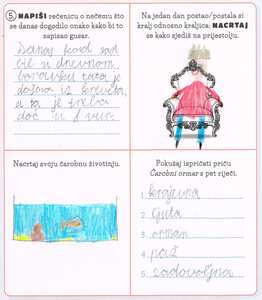 5. NAPIŠI rečenicu o nečemu što
se danas dogodilo onako kako bi to
napisao gusar.
Danas kad sam
bil u dnevnom
boravku
došava iz kreveta
Na jedan dan postao/postala si
kralj odnosno kraljica; NACRTAJ
se kako sjediš na prijestolju.
Nacrtaj svoju čarobnu životinju.
Pokušaj ispričati priču
Čarobni ormar s pet riječi.
1.
2. ljuta
3. ormar
4. paž
5. zadovoljna